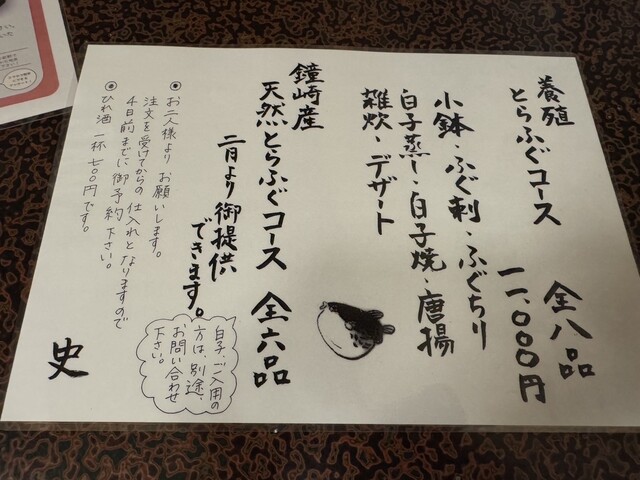 養殖
とらふぐコース 全八品
一一、000円
小鉢・ふぐ刺・ふぐちり
白子蒸し・白子焼・唐揚
雑炊・デザート
鐘崎産
天然とらふぐコース 全六品
二月より御提供
できます。
白子、ご入用の
方は、別途、
お問い合わせ
下さい。
◎お二人様より お願いします。
注文を受けてからの 仕入れとなりますので
4日前までに御予約下さい。
◎ひれ酒 一杯 七00円です。
史